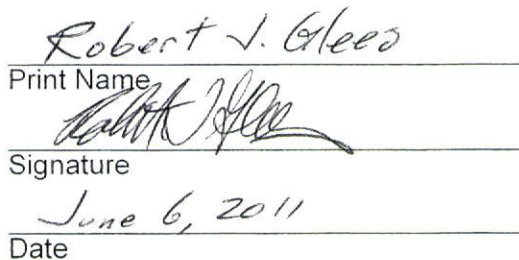 Robert J. Glees
Print Name
Signature
June 6, 2011
Date